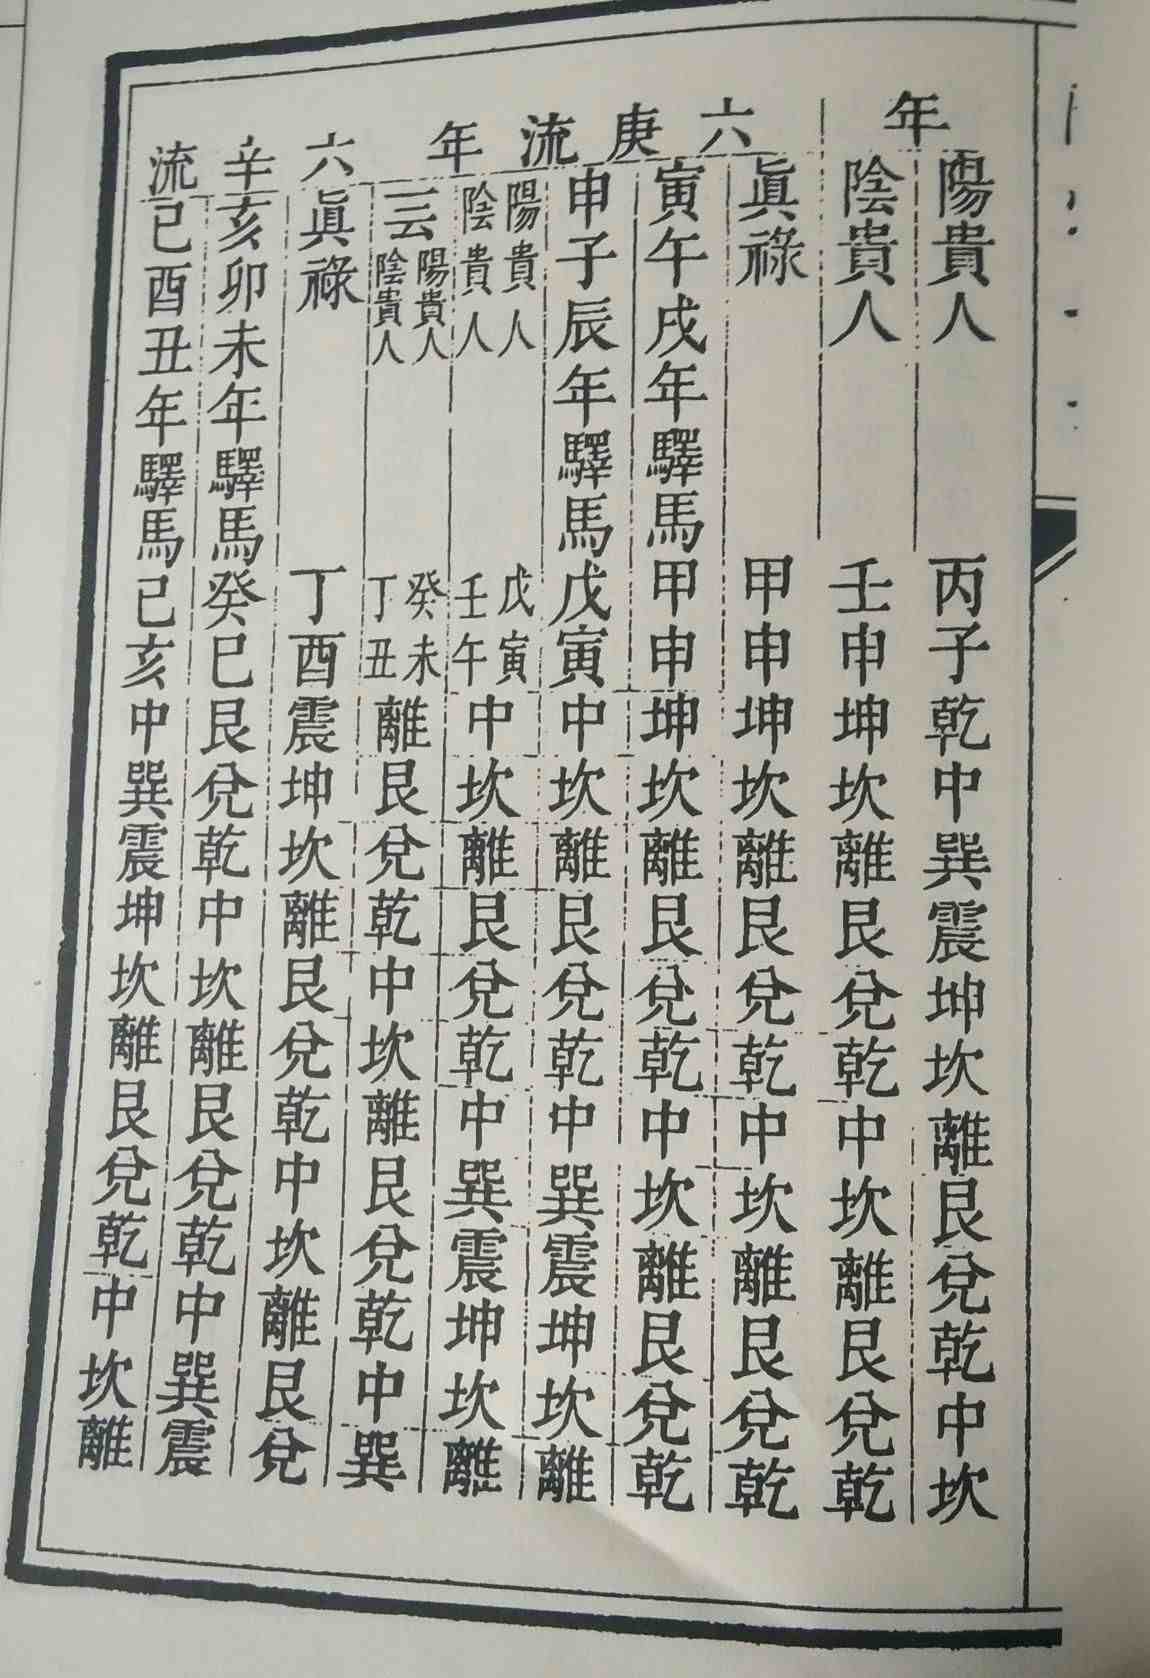 年
陽貴人 丙子乾中巽震坤坎離艮兌乾中坎
陰貴人 壬申坤坎離艮兌乾中坎離艮兌乾
六庚流年
眞祿 甲申坤坎離艮兌乾中坎離艮兌乾
寅午戌年驛馬甲申坤坎離艮兌乾中坎離艮兌乾
申子辰年驛馬戊寅中坎離艮兌乾中巽震坤坎離
陽貴人 戊寅
陰貴人 壬午
中坎離艮兌乾中巽震坤坎離
三云
陽貴人 癸未
陰貴人 丁丑
離艮兌乾中坎離艮兌乾中巽
六辛流
眞祿 丁酉震坤坎離艮兌乾中坎離艮兌
亥卯未年驛馬癸巳艮兌乾中坎離艮兌乾中巽震
巳酉丑年驛馬己亥中巽震坤坎離艮兌乾中坎離